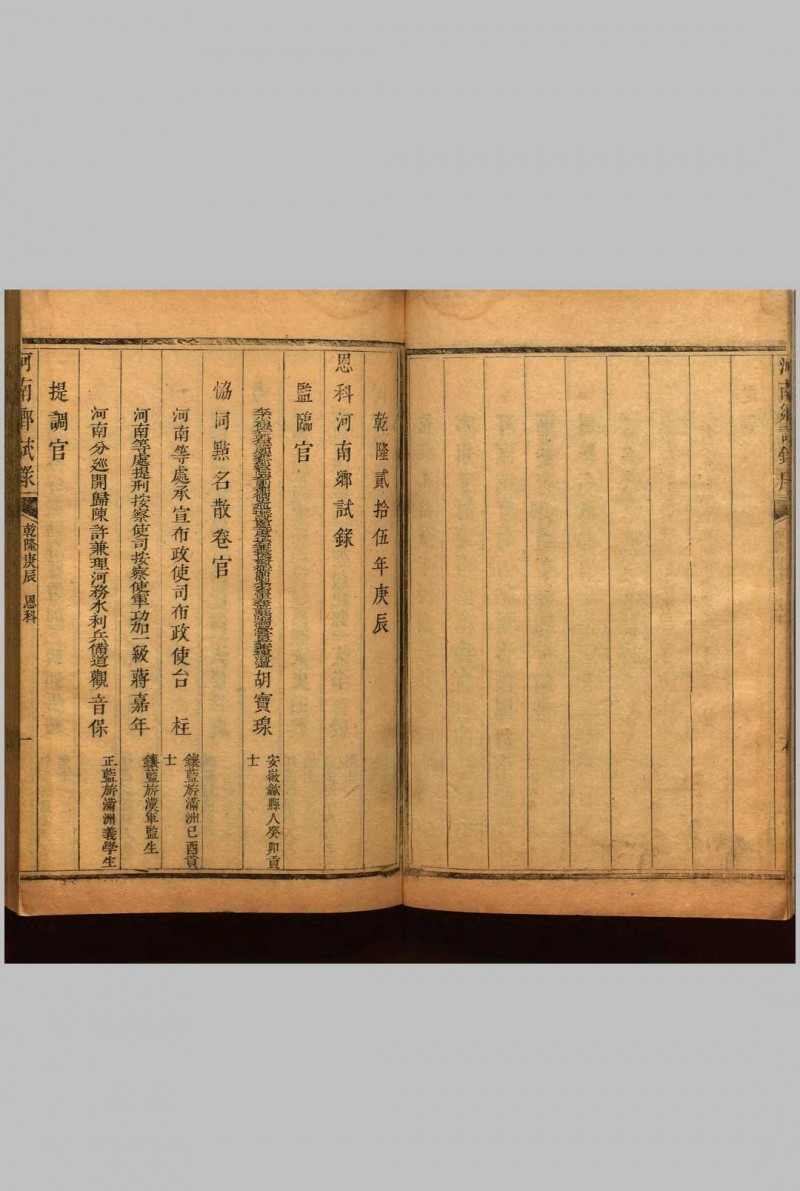 河南鄉試錄序
乾隆貳拾伍年庚辰
恩科河南鄉試錄
監臨官
胡寶瑔
安徽歙縣人癸卯貢士
協同點名散卷官
河南等處承宣布政使司布政使台　柱
鑲藍旂滿洲己酉貢士
河南等處提刑按察使司按察使軍功加一級蔣嘉年
鑲藍旂漢軍監生
河南分巡開歸陳許兼理河務水利兵備道觀音保
正藍旂滿洲義學生
提調官
河南鄉試錄
乾隆庚辰　恩科
一